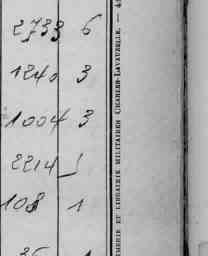 2733 6
1240 3
1004 3
2214 1
108 1
36 1
IMERIE ET LIBRAIRIE MILITAIRES CHARLES-LAVAUZELLE. —